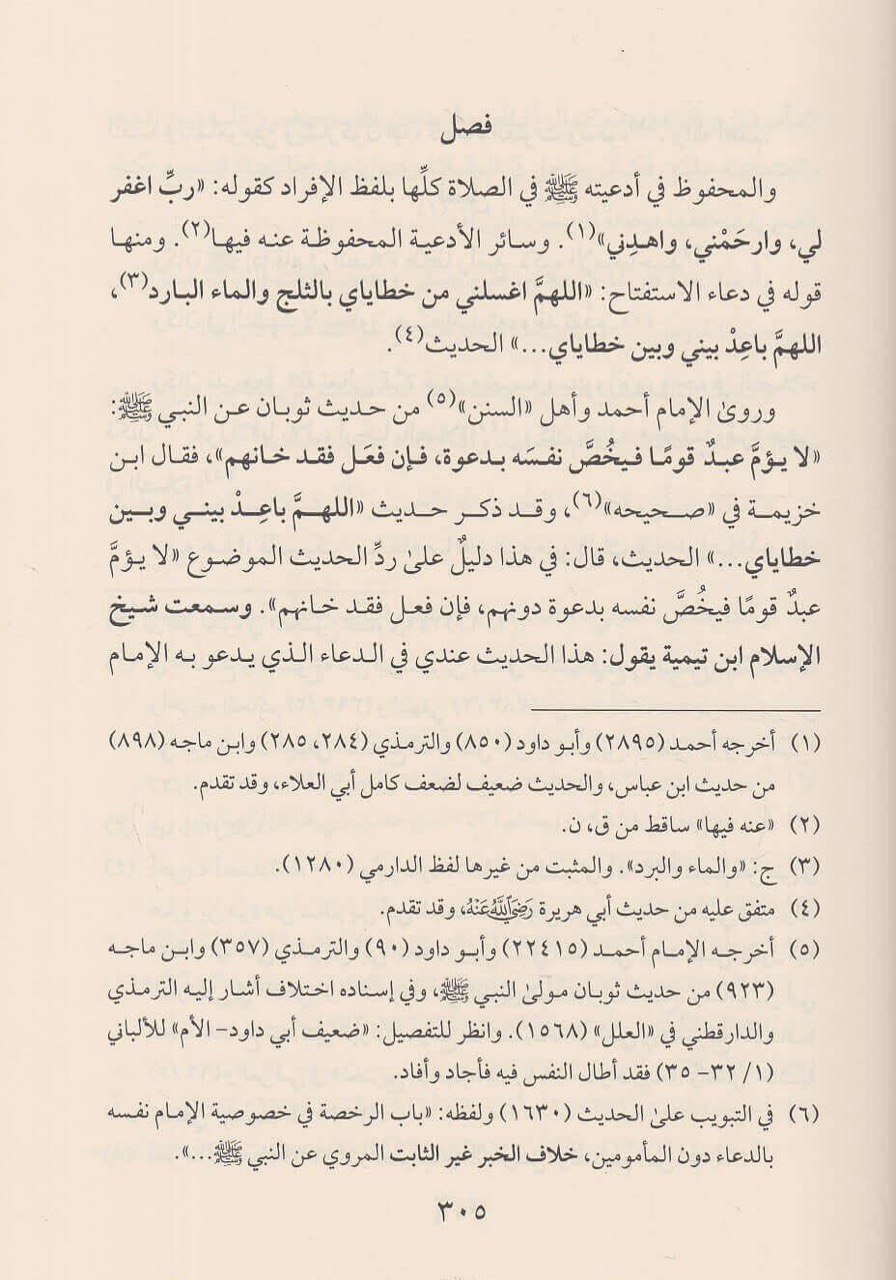 فصل
والمحفوظ في أدعيته ﷺ في الصلاة كلِّها بلفظ الإفراد كقوله: «ربِّ اغفر
لي، وارحَمْني، واهدِني»(١). وسائر الأدعية المحفوظة عنه فيها(٢). ومنها
قوله في دعاء الاستفتاح: «اللهمَّ اغسلني من خطاياي بالثلج والماء البارد(٣)،
اللهمَّ باعِدْ بيني وبين خطاياي...» الحديث(٤).
وروىٰ الإمام أحمد وأهل «السنن»(٥) من حديث ثوبان عن النبي ﷺ:
«لا يؤمَّ عبدٌ قومًا فيخُصَّ نفسَه بدعوة، فإن فعَل فقد خانهم»، فقال ابن
خزيمة في «صحيحه»(٦)، وقد ذكر حديث «اللهمَّ باعِدْ بيني وبين
خطاياي...» الحديث، قال: في هذا دليلٌ علىٰ ردِّ الحديث الموضوع «لا يؤمَّ
عبدٌ قومًا فيخُصَّ نفسه بدعوة دونهم، فإن فعل فقد خانهم». وسمعت شيخ
الإسلام ابن تيمية يقول: هذا الحديث عندي في الدعاء الذي يدعو به الإمام
(١) أخرجه أحمد (٢٨٩٥) وأبو داود (٨٥٠) والترمذي (٢٨٤، ٢٨٥) وابن ماجه (٨٩٨)
من حديث ابن عباس، والحديث ضعيف لضعف كامل أبي العلاء، وقد تقدم.
(٢) «عنه فيها» ساقط من ق، ن.
(٣) ج: «والماء والبرد». والمثبت من غيرها لفظ الدارمي (١٢٨٠).
(٤) متفق عليه من حديث أبي هريرة رَضِيَ اللَّهُ عَنْهُ، وقد تقدم.
(٥) أخرجه الإمام أحمد (٢٢٤١٥) وأبو داود (٩٠) والترمذي (٣٥٧) وابن ماجه
(٩٢٣) من حديث ثوبان مولىٰ النبي ﷺ، وفي إسناده اختلاف أشار إليه الترمذي
والدارقطني في «العلل» (١٥٦٨). وانظر للتفصيل: «ضعيف أبي داود- الأم» للألباني
(١/ ٣٢- ٣٥) فقد أطال النفس فيه فأجاد وأفاد.
(٦) في التبويب علىٰ الحديث (١٦٣٠) ولفظه: «باب الرخصة في خصوصية الإمام نفسه
بالدعاء دون المأمومين، خلاف الخبر غير الثابت المروي عن النبي ﷺ...».
٣٠٥